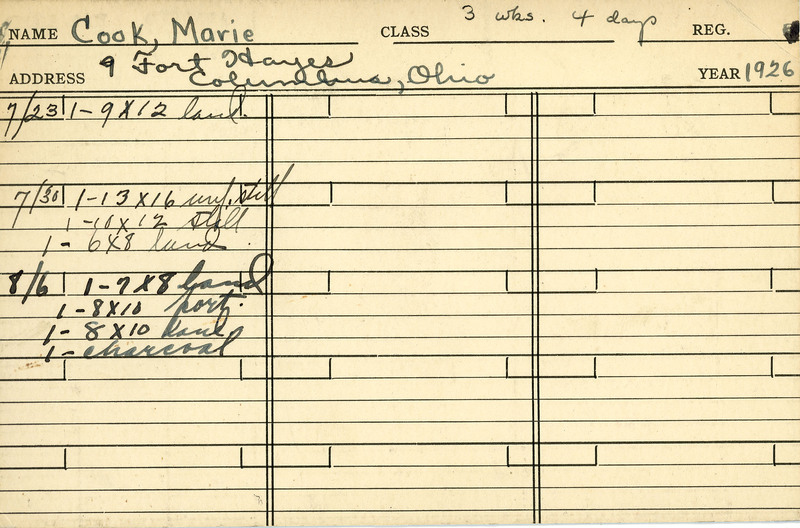 NAME Cook, Marie CLASS 3 wks. 4 days REG.
ADDRESS 9 Fort Hayes
Columbus, Ohio YEAR 1926
7/23 1-9x12 land.
7/30 1-13x16 unf. still
1-10x12 still
1-6x8 land
8/6 1-7x8 land
1-8x10 port.
1-8x10 land
1-charcoal